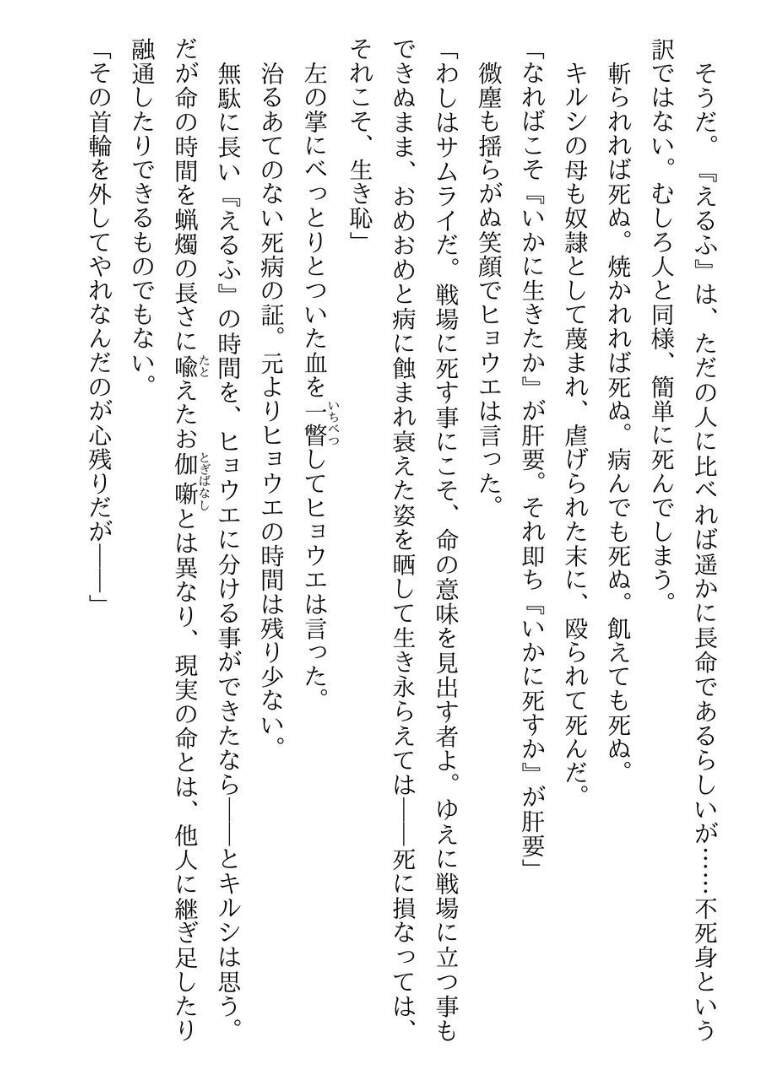 そうだ。『えるふ』は、ただの人に比べれば遥かに長命であるらしいが……不死身という
訳ではない。むしろ人と同様、簡単に死んでしまう。
斬られれば死ぬ。焼かれれば死ぬ。病んでも死ぬ。飢えても死ぬ。
キルシの母も奴隷として蔑まれ、虐げられた末に、殴られて死んだ。
「なればこそ『いかに生きたか』が肝要。それ即ち『いかに死すか』が肝要」
微塵も揺らがぬ笑顔でヒョウエは言った。
「わしはサムライだ。戦場に死す事にこそ、命の意味を見出す者よ。ゆえに戦場に立つ事も
できぬまま、おめおめと病に蝕まれ衰えた姿を晒して生き永らえては――死に損なっては、
それこそ、生き恥」
左の掌にべっとりとついた血を一瞥いちべつしてヒョウエは言った。
治るあてのない死病の証。元よりヒョウエの時間は残り少ない。
無駄に長い『えるふ』の時間を、ヒョウエに分ける事ができたなら――とキルシは思う。
だが命の時間を蝋燭の長さに喩たとえたお伽噺とぎばなしとは異なり、現実の命とは、他人に継ぎ足したり
融通したりできるものでもない。
「その首輪を外してやれなんだのが心残りだが――」